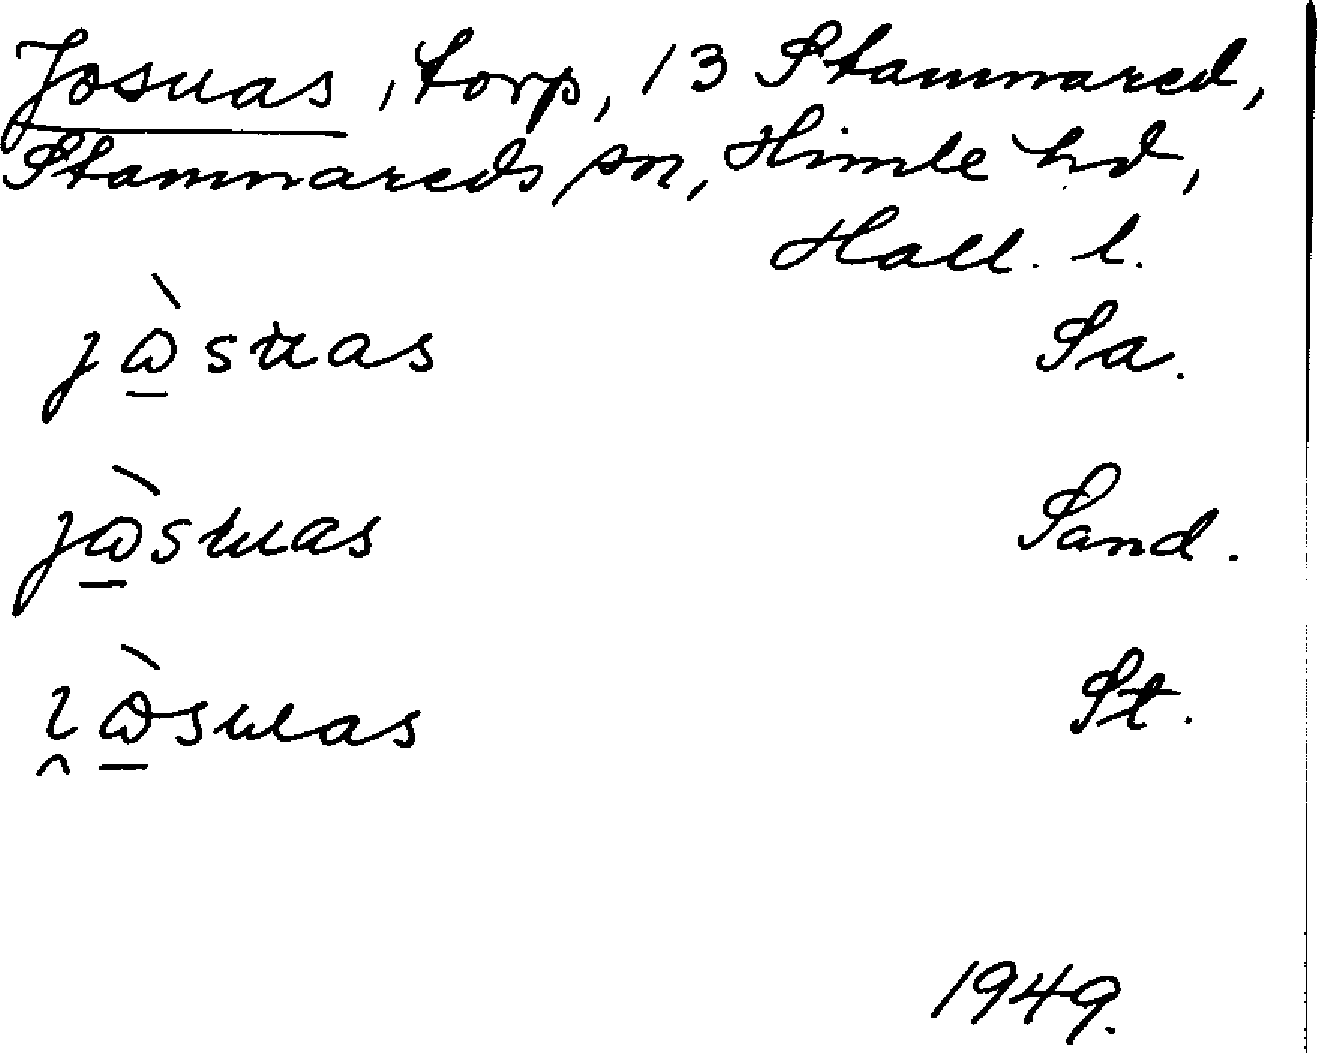 Josuas, torp, 13 Stamnared,
Stamnareds sn, Himle hd,
Hall. l.
jò̠suas Sa.
jò̠suas Sand.
ı̯ò̠suas St.
1949.